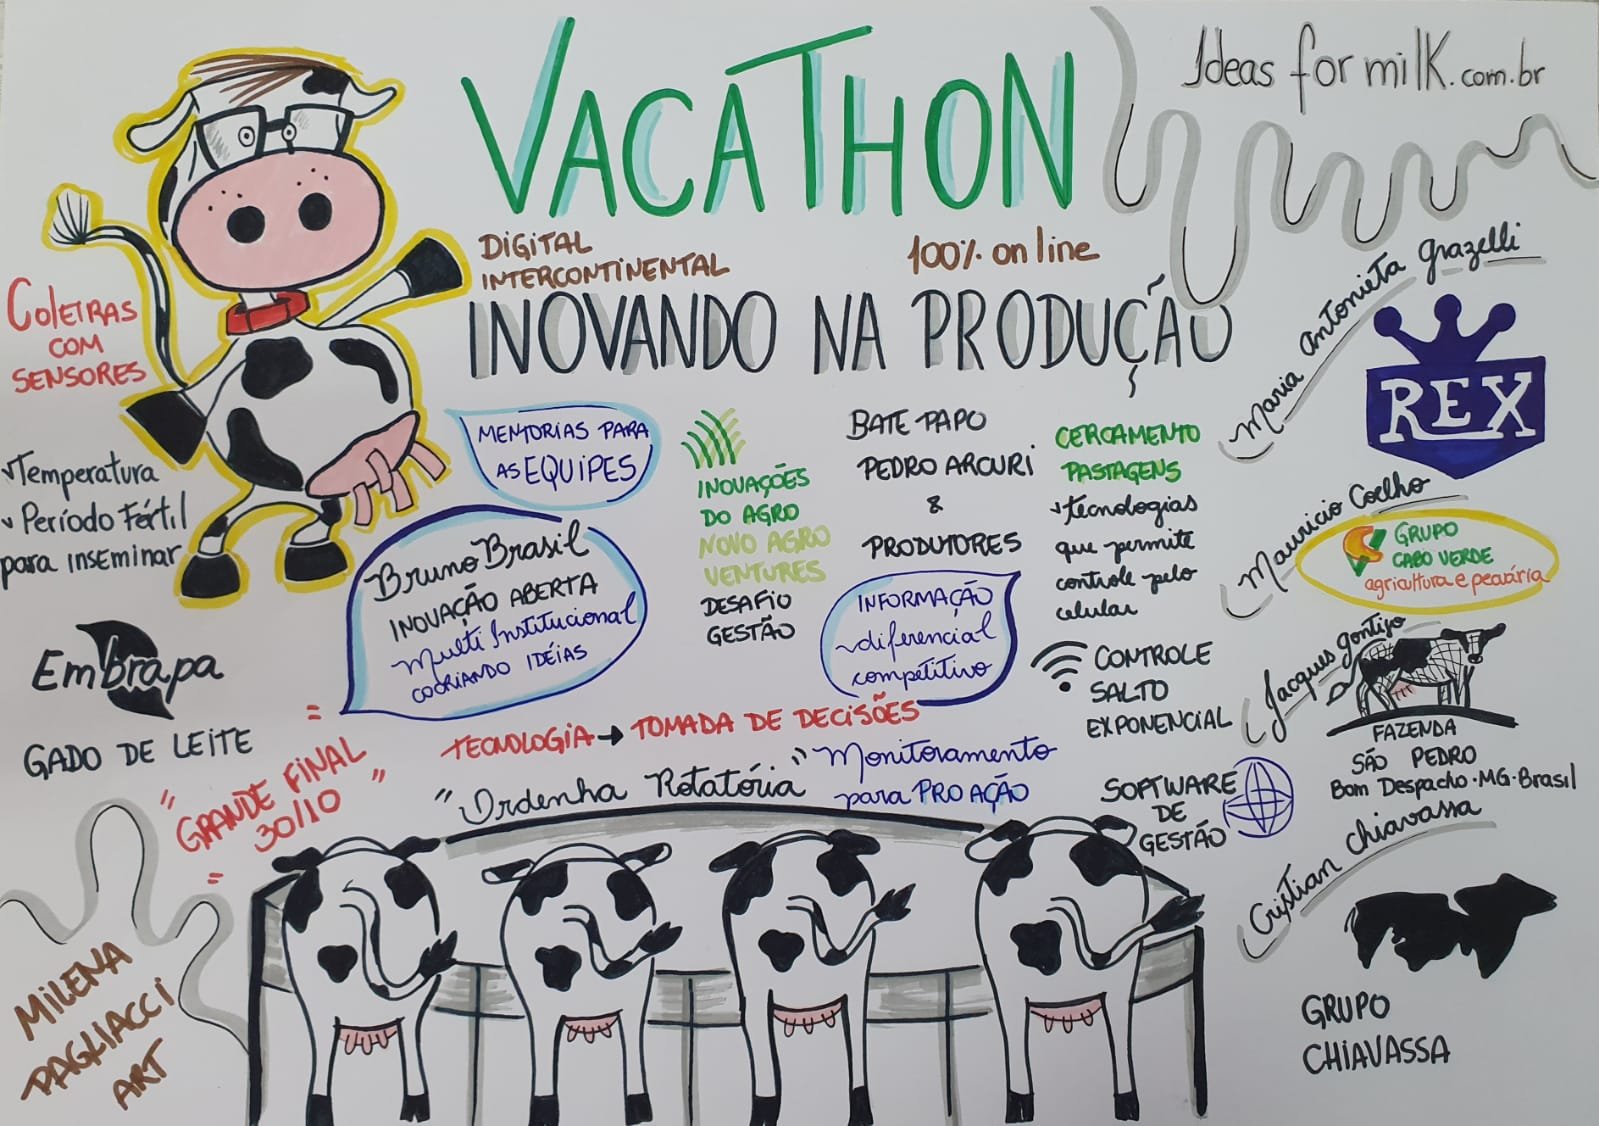 VACATHON
Ideas for milk.com.br
DIGITAL
INTERCONTINENTAL
100% on line
INOVANDO NA PRODUÇÃO
COLEIRAS
COM
SENSORES
Temperatura
Período Fértil
para inseminar
MENTORIAS PARA
AS EQUIPES
Bruno Brasil
INOVAÇÃO ABERTA
Multi Institucional
COCRIANDO IDÉIAS
INOVAÇÕES
DO AGRO
NOVO AGRO
VENTURES
DESAFIO
GESTÃO
BATE PAPO
PEDRO ARCURI
&
PRODUTORES
INFORMAÇÃO
diferencial
competitivo
CERCAMENTO
PASTAGENS
tecnologias
que permite
controle pelo
celular
CONTROLE
SALTO
EXPONENCIAL
SOFTWARE
DE
GESTÃO
Maria Antonieta Grazelli
REX
Mauricio Coelho
GRUPO
CABO VERDE
agricultura e pecuária
Jacques Gontijo
FAZENDA
SÃO PEDRO
Bom Despacho·MG·Brasil
Cristian Chiavassa
GRUPO
CHIAVASSA
Embrapa
GADO DE LEITE
TECNOLOGIA → TOMADA DE DECISÕES
"Ordenha Rotatória"
Monitoramento
para PRO AÇÃO
"GRANDE FINAL
30/10"
MILENA
PAGLIACCI
ART